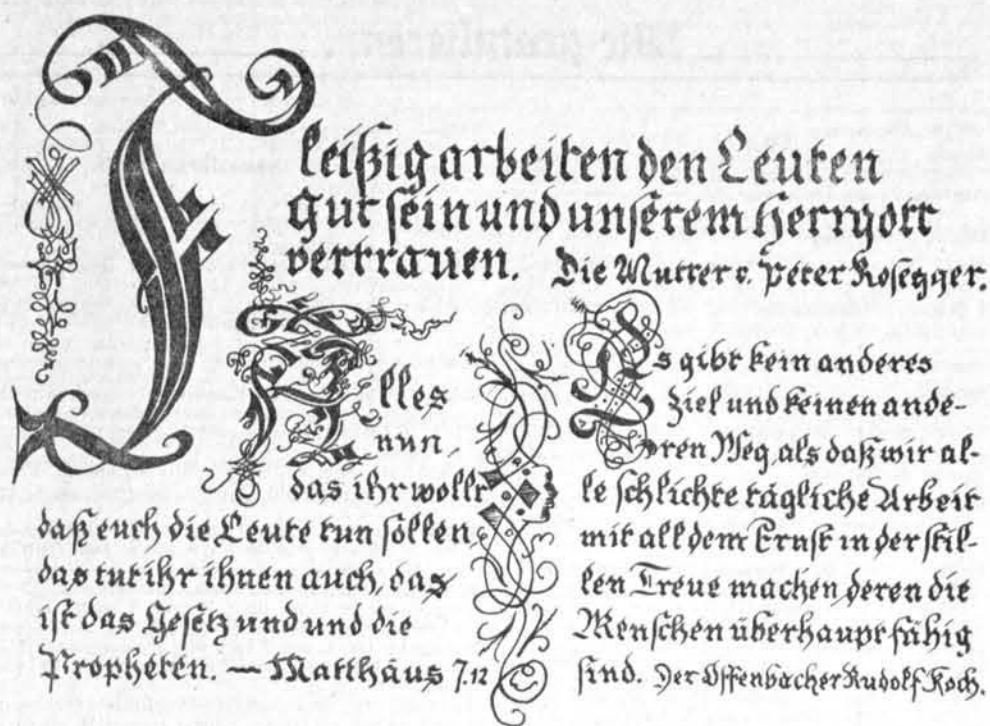 Fleißig arbeiten den Leuten
gut sein und unserem Herrgott
vertrauen. Die Mutter v. Peter Rosegger.
Alles
nun,
das ihr wollt
daß euch die Leute tun sollen,
das tut ihr ihnen auch, das
ist das Gesetz und und die
Propheten. — Matthäus 7.12
Es gibt kein anderes
Ziel und keinen ande-
ren Weg, als daß wir al-
le schlichte tägliche Arbeit
mit all dem Ernst in der stil-
len Treue machen, deren die
Menschen überhaupt fähig
sind. Der Offenbacher Rudolf Koch.